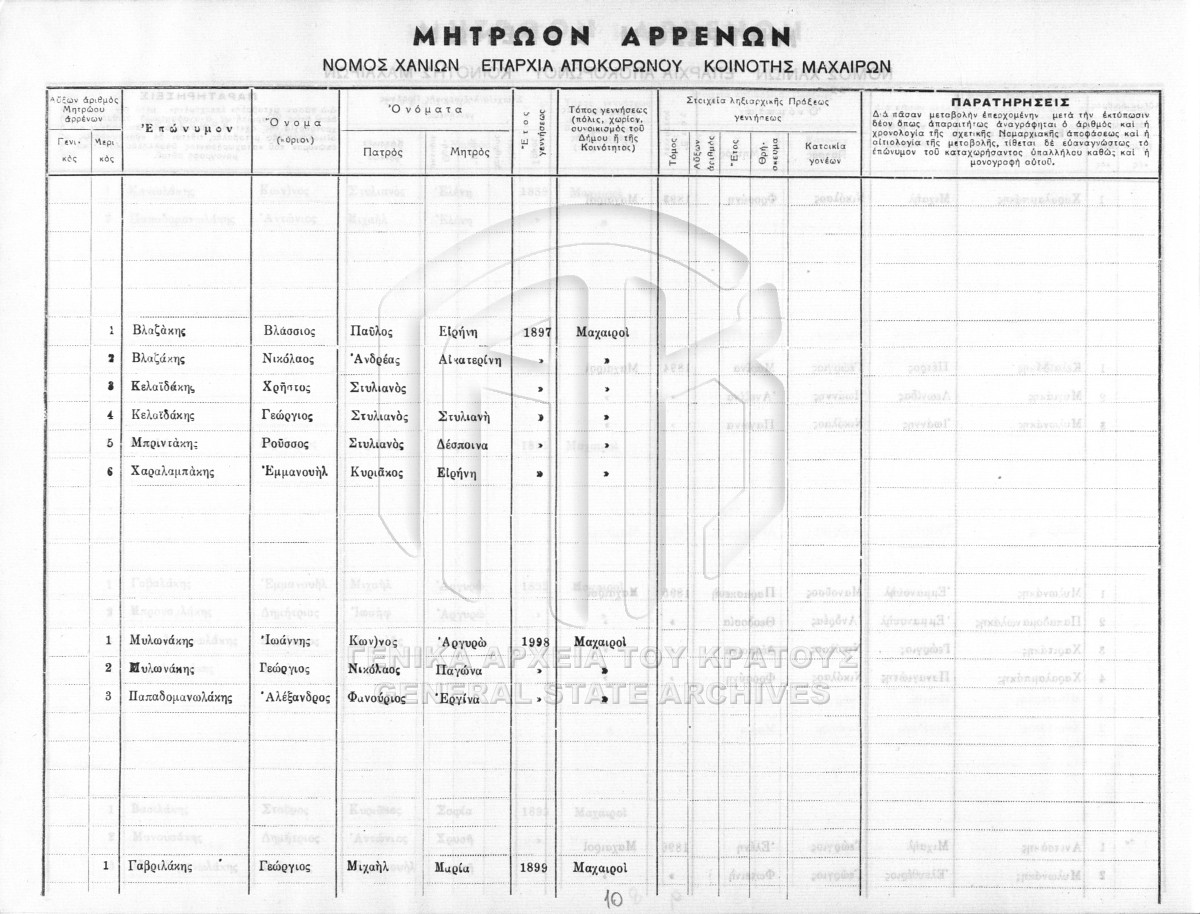 ΜΗΤΡΩΟΝ ΑΡΡΕΝΩΝ
ΝΟΜΟΣ ΧΑΝΙΩΝ ΕΠΑΡΧΙΑ ΑΠΟΚΟΡΩΝΟΥ ΚΟΙΝΟΤΗΣ ΜΑΧΑΙΡΩΝ
Αὔξων ἀριθμὸς Μητρώου ἀρρένων
Γενι- κὸς
Μερι- κὸς
Ἐπώνυμον
Ὄνομα (κύριον)
Ὀνόματα
Πατρὸς
Μητρὸς
Ἔτος γεννήσεως
Τόπος γεννήσεως (πόλις, χωρίον, συνοικισμὸς τοῦ Δήμου ἢ τῆς Κοινότητος)
Στοιχεῖα ληξιαρχικῆς Πράξεως γεννήσεως
Τόμος
Αὔξων ἀριθμὸς
Ἔτος
Θρή- σκευμα
Κατοικία γονέων
ΠΑΡΑΤΗΡΗΣΕΙΣ
Διὰ πᾶσαν μεταβολὴν ἐπερχομένην μετὰ τὴν ἐκτύπωσιν
δέον ὅπως ἀπαραιτήτως ἀναγράφηται ὁ ἀριθμὸς καὶ ἡ
χρονολογία τῆς σχετικῆς Νομαρχιακῆς ἀποφάσεως καὶ ἡ
αἰτιολογία τῆς μεταβολῆς, τίθεται δὲ εὐαναγνώστως τὸ
ἐπώνυμον τοῦ καταχωρήσαντος ὑπαλλήλου καθὼς καὶ ἡ
μονογραφὴ αὐτοῦ.
1 Βλαζάκης Βλάσσιος Παῦλος Εἰρήνη 1897 Μαχαιροὶ
2 Βλαζάκης Νικόλαος Ἀνδρέας Αἰκατερίνη » »
3 Κελαϊδάκης Χρῆστος Στυλιανὸς » »
4 Κελαϊδάκης Γεώργιος Στυλιανὸς Στυλιανὴ » »
5 Μπριντάκης Ροῦσσος Στυλιανὸς Δέσποινα » »
6 Χαραλαμπάκης Ἐμμανουὴλ Κυριᾶκος Εἰρήνη » »
1 Μυλωνάκης Ἰωάννης Κων)νος Ἀργυρὼ 1998 Μαχαιροὶ
ΓΕΝΙΚΑ ΑΡΧΕΙΑ ΤΟΥ ΚΡΑΤΟΥΣ
2 Μυλωνάκης Γεώργιος Νικόλαος Παγώνα » »
GENERAL STATE ARCHIVES
3 Παπαδομανωλάκης Ἀλέξανδρος Φανούριος Ἐργίνα » »
1 Γαβριλάκης Γεώργιος Μιχαὴλ Μαρία 1899 Μαχαιροὶ
10